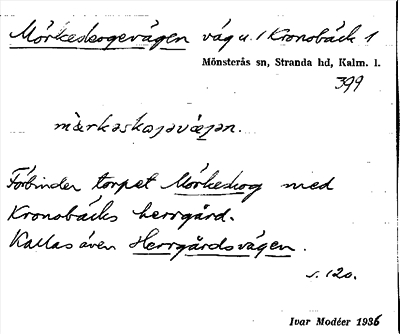 Mörkeskogevägen väg u. / Kronobäck 1
Mönsterås sn, Stranda hd, Kalm. l.
399
mæ̀rkəskoɡəvæ̨ɡən.
Förbinder torpet Mörkeskog med
Kronobäcks herrgård.
Kallas även Herrgårdsvägen.
s. 120.
Ivar Modéer 1936